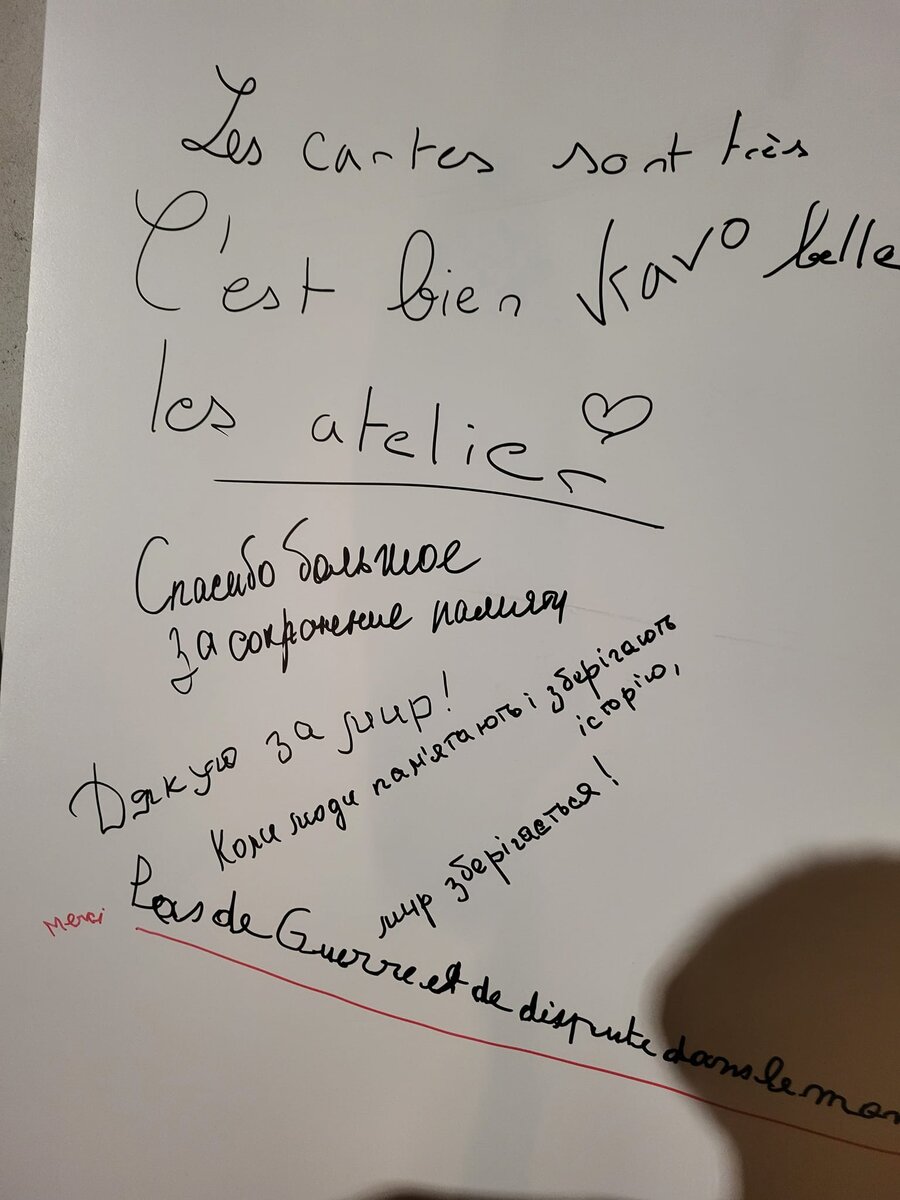 Les cartes sont très
belle
C'est bien bravo
les atelier
Спасибо большое
за сохранение памяти
Дякую за мир!
Коли люди пам'ятають і зберігають
історію,
мир зберігається!
merci
Pas de Guerre et de dispute dans le mon